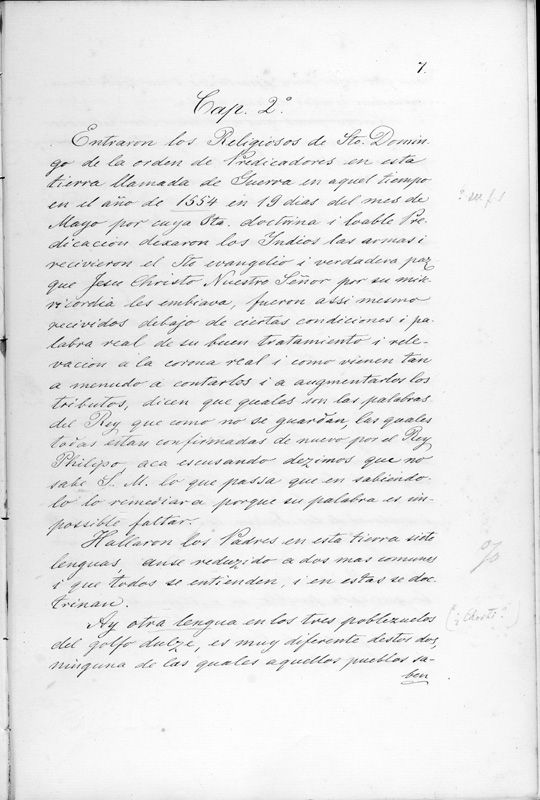 7.
Cap. 2º
Entraron los Religiosos de Sto. Domin-
go de la orden de Predicadores en esta
tierra llamada de Guerra en aquel tiempo
en el año de 1554 en 19 dias del mes de
Mayo por cuya Sta. doctrina i loable Pre-
dicacion dexaron los Indios las armas i
recivieron el Sto evangelio i verdadera paz
que Jesu Christo Nuestro Señor por su mise-
ricordia les embiava, fueron assi mesmo
recividos debajo de ciertas condiciones i pa-
labra real de su buen tratamiento i rele-
vacion a la corona real i como vienen tan
a menudo a contarlos i a augmentarlos los
tributos, dicen que quales son las palabras
del Rey que como no se guardan, las quales
todas estan confirmadas de nuevo por el Rey
Philipo, aca escusando dezimos que no
sabe S. M. lo que passa que en sabiendo
lo lo remediara porque su palabra es im-
possible faltar.
Hallaron los Padres en esta tierra siete
lenguas, anse reduzido a dos mas comunes
i que todos se entienden, i en estas se doc-
trinan.
Ay otra lengua en los tres poblezuelos
del golfo dulze, es muy diferente destos dos,
ninguna de las quales aquellos pueblos sa-
ben